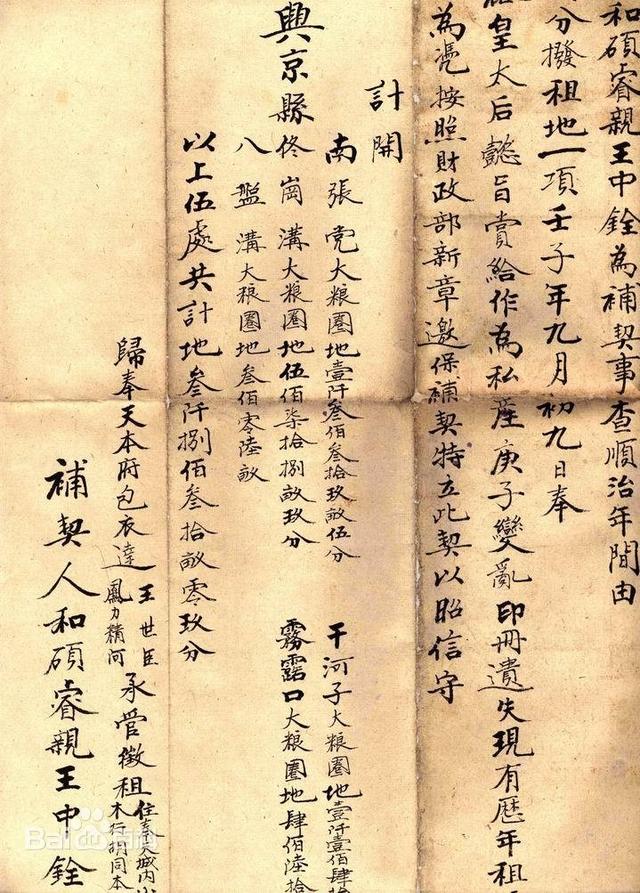 和碩睿親王中銓為補契事查順治年間由
分撥租地一項壬子年九月初九日奉
皇太后懿旨賞給作為私產庚子變亂印冊遺失現有歷年租
為憑按照財政部新章邀保補契特立此契以昭信守
計開
興京縣
南張党大粮圈地壹阡叁佰叁拾玖畝伍分
干河子大粮圈地壹阡壹佰肆拾
佟崗溝大粮圈地伍佰柒拾捌畝玖分
霧露口大粮圈地肆佰陸拾
八盤溝大粮圈地叁佰零陸畝
以上伍處共計地叁阡捌佰叁拾畝零玖分
歸奉天本府包衣達
王世臣
鳳力積河
承管徵租
住奉天城内小
木行胡同本
補契人和碩睿親王中銓
Bai 百科